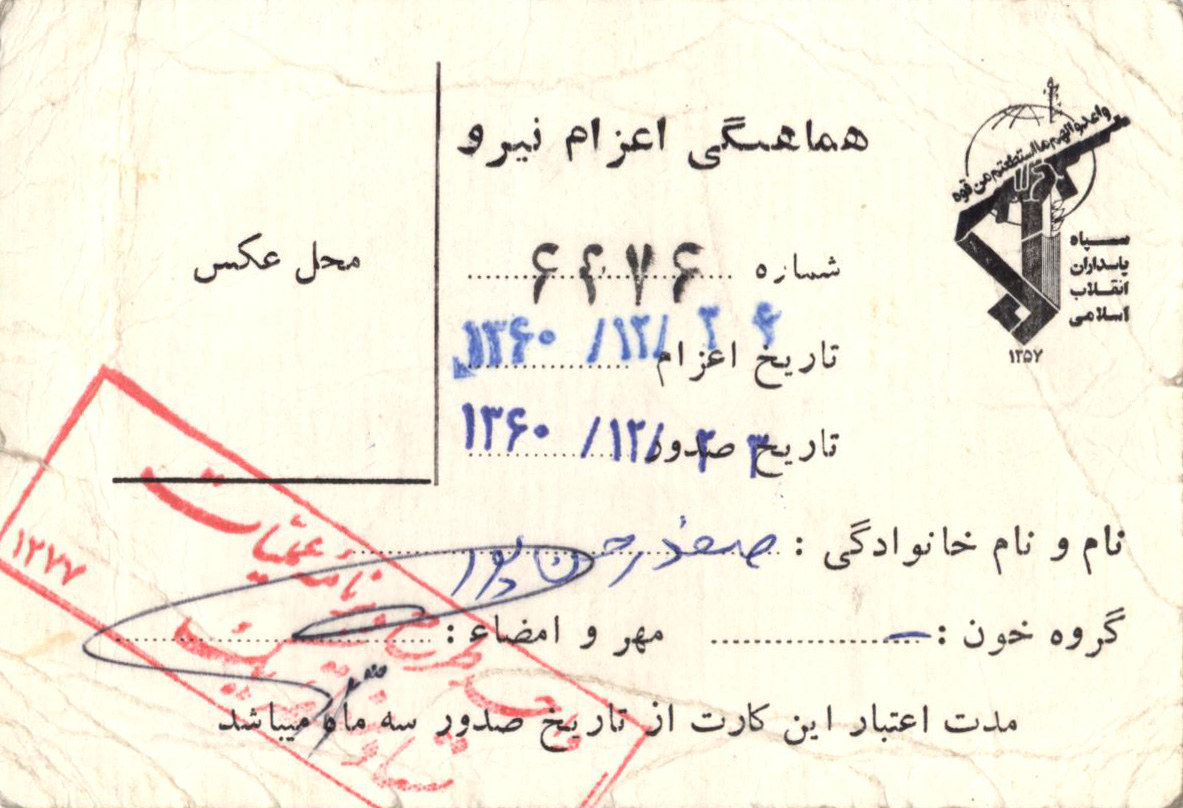 واعدوالهم مااستطعتم من قوه
سپاه
پاسداران
انقلاب
اسلامی
۱۳۵۷
هماهنگی اعزام نیرو
شماره ۶۲۷۶
تاریخ اعزام ۱۳۶۰/۱۲/۲۴
تاریخ صدور ۱۳۶۰/۱۲/۲۳
محل عکس
نام و نام خانوادگی : صفدر
گروه خون : –
مهر و امضاء :
مدت اعتبار این کارت از تاریخ صدور سه ماه میباشد
عملیات
۱۲۷۷